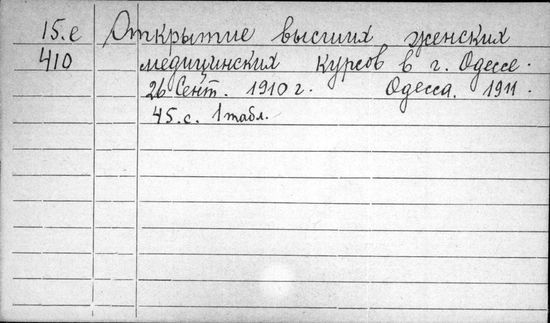 15.е Открытие высших женских
410 медицинских курсов в г. Одессе.
26 Сент. 1910 г. Одесса. 1911.
45.с. 1 табл.